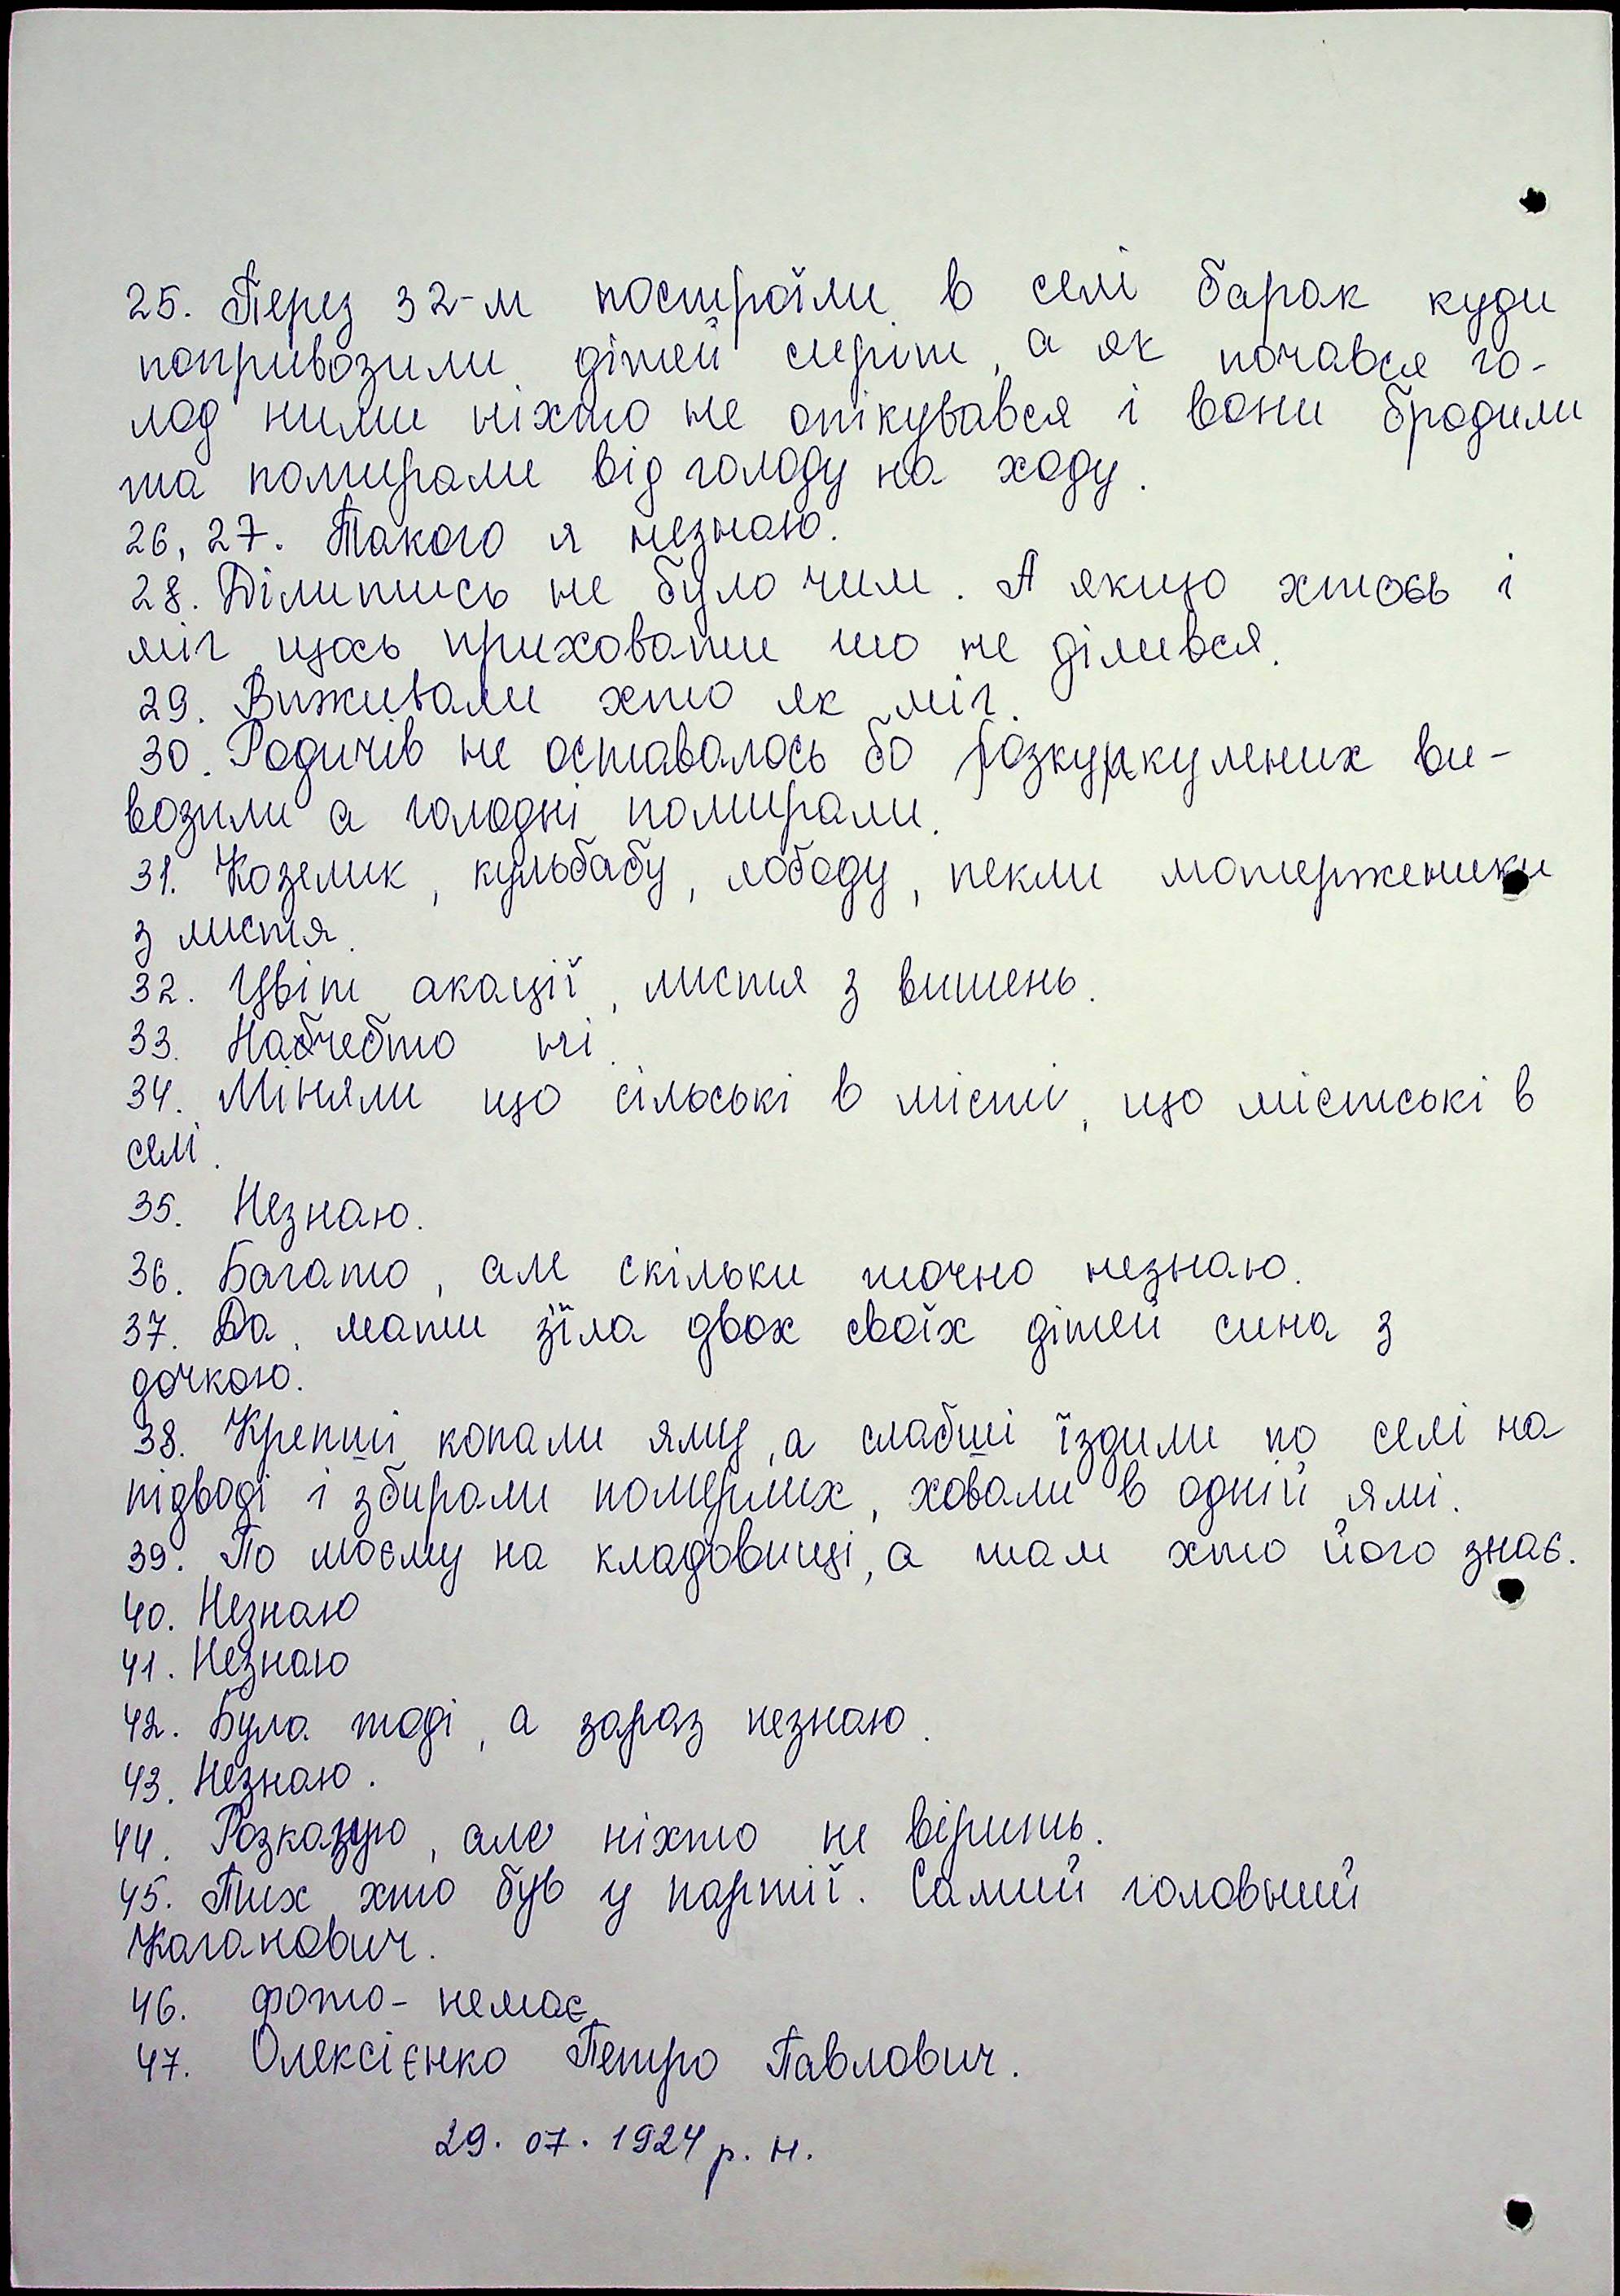 25. Перез 32-м построїли в селі барак куди
попривозили дітей сиріт, а як почався го-
лод ними ніхто не опікувався і вони бродили
та помирали від голоду на ходу.
26, 27. Такого я незнаю.
28. Ділитись не було чим. А якщо хтось і
міг щось приховати то не ділився.
29. Виживали хто як міг.
30. Родичів не оставалось бо розкуркулених ви-
возили а голодні помирали.
31. Козелик, кульбабу, лободу, пекли матерженики
з листя.
32. Цвіт акації, листя з вишень.
33. ні.
34. Міняли що сільські в місті, що містські в
селі.
35. Незнаю.
36. Багато, але скільки точно незнаю.
37. Да, мати зʼїла двох своїх дітей сина з
дочкою.
38. Крепші копали яму, а слабші їздили по селі на
підводі і збирали померлих, ховали в одній ямі.
39. По моєму на кладовищі, а там хто його знає.
40. Незнаю
41. Незнаю
42. Була тоді, а зараз незнаю.
43. Незнаю.
44. Розказую, але ніхто не вірить.
45. Тих хто був у партії. Самий головний
Каганович.
46. фото - немає.
47. Олексієнко Петро Павлович.
29. 07. 1924 р. н.